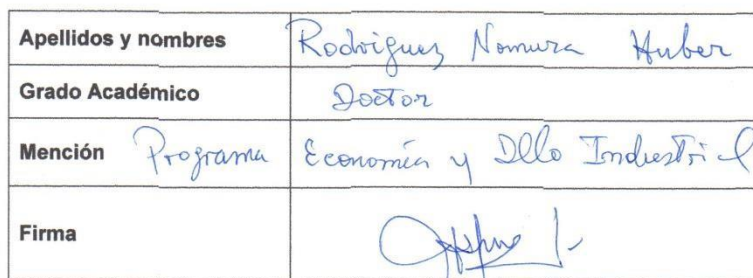 Apellidos y nombres Rodriguez Nomura Huber
Grado Académico Doctor
Mención Programa Economía y Dllo Industrial
Firma